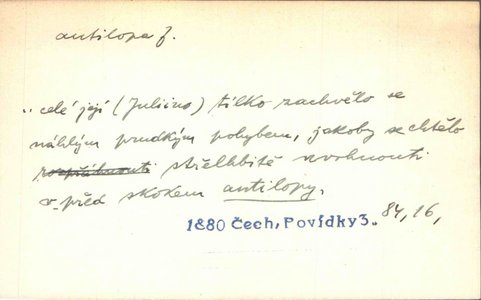 antilopa f.
„celé její (Juliino) tílko zachvělo se
náhlým prudkým pohybem, jakoby se chtělo
rozpřáhnouti střelhbitě vrhnouti
v před skokem antilopy.
1880 Čech, Povídky 3. 84, 16,